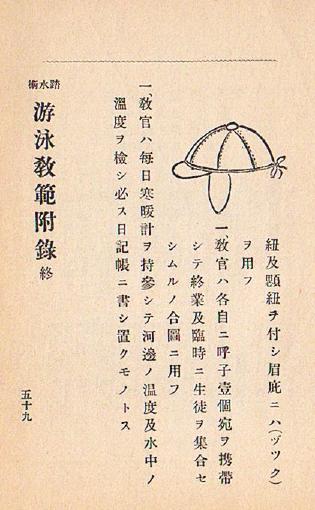 紐及顎紐ヲ付シ眉庇ニハ(ヅツク)
ヲ用フ
一、敎官ハ各自ニ呼子壹個宛ヲ携帶
シテ終業及臨時ニ生徒ヲ集合セ
シムルノ合圖ニ用フ
一、敎官ハ每日寒暖計ヲ持參シテ河邊ノ溫度及水中ノ
溫度ヲ檢シ必ス日記帳ニ書シ置クモノトス
踏水術
游泳敎範附錄 終
五十九